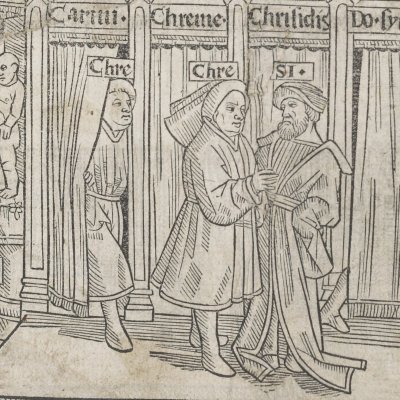 Carini · Chreme · Chrisidis Do · sy
Chre Chre SI ·